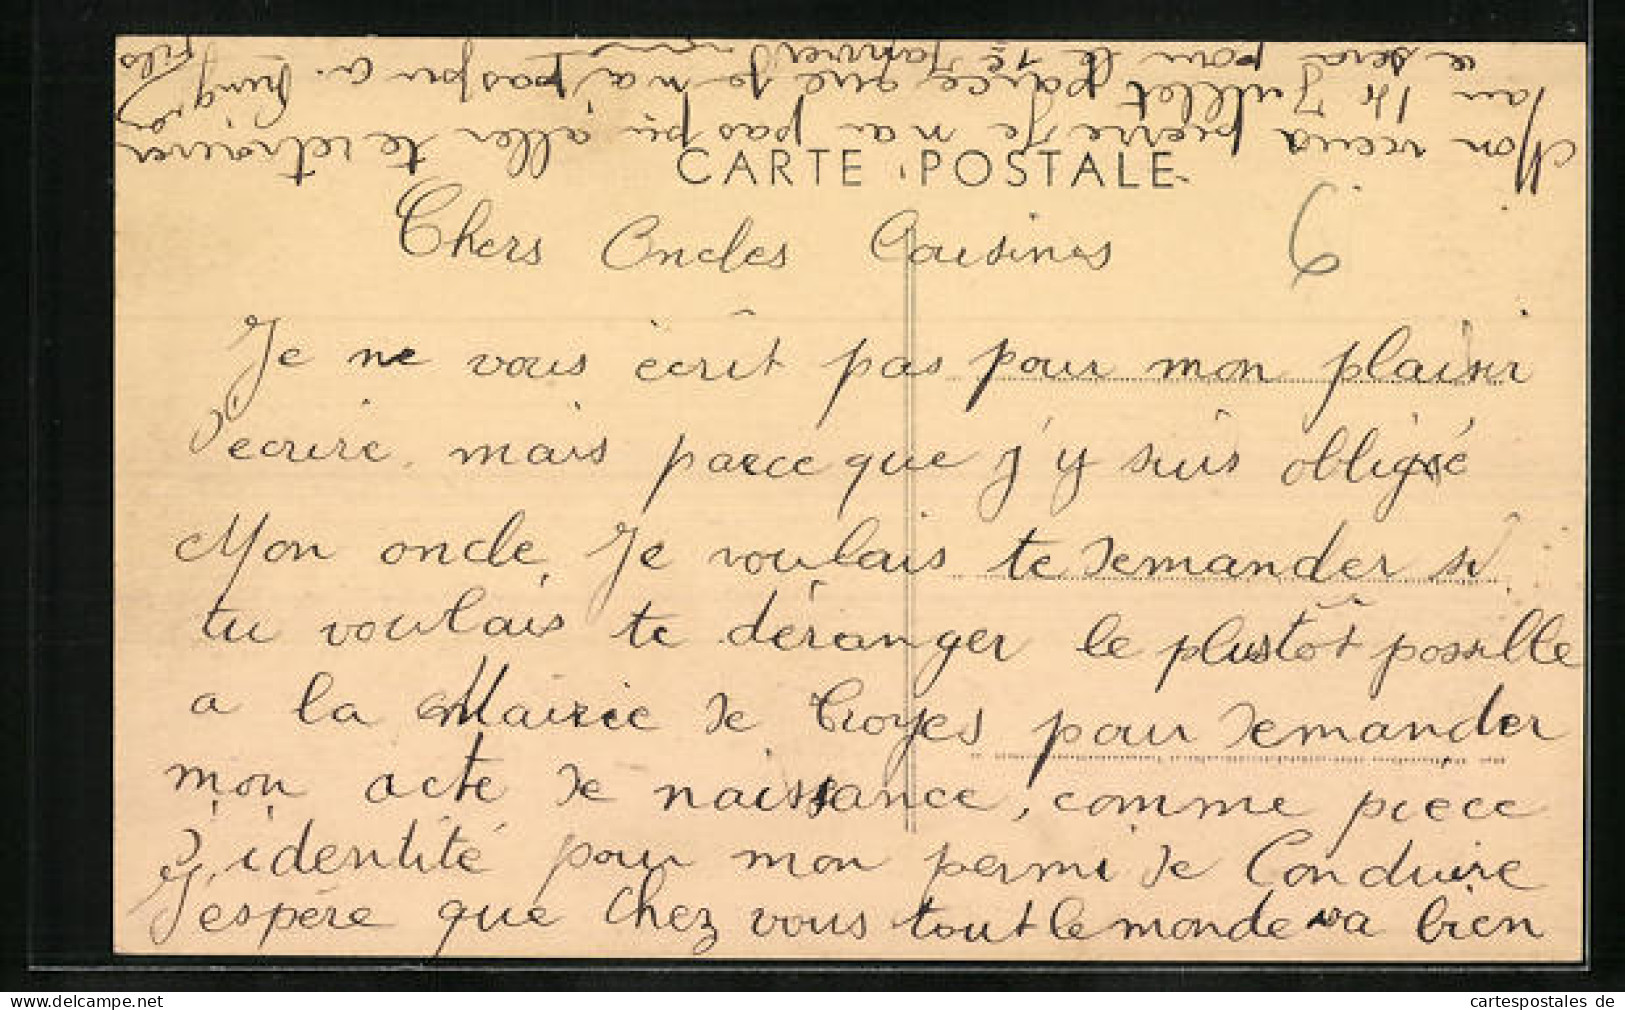 CARTE POSTALE
Chers Oncles Cousines
Je ne vous écrit pas pour mon plaisir
d'écrire, mais parce que j'y suis obligé
Mon oncle, Je voulais te demander si
tu voulais te déranger le plustôt possille
a la Mairie de Troyes pour demander
mon acte de naissance, comme piece
d'identité pour mon permi de Conduire
J'espére que chez vous tout le monde va bien
Mon vieux pierre Je n'ai pas pu aller te retrouver
au 14 Juillet parce que je n'ai pas pu a.
ce sera pour le 1e Janvier
fils
cartespostales.de
www.cartespostales.de